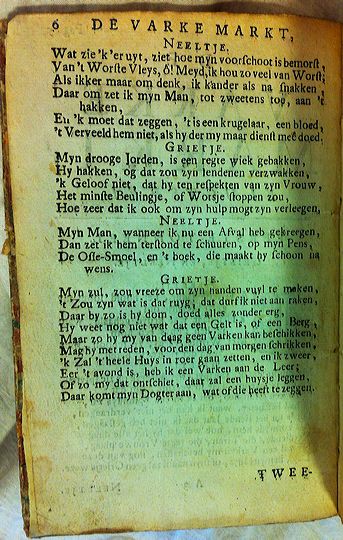 6 DE VARKE MARKT,
NEELTJE.
Wat zie 'k 'er uyt, ziet hoe myn voorschoot is bemorst,
Van 't Worste Vleys, ô! Meyd, ik hou zo veel van Worst;
Als ikker maar om denk, ik kander als na snakken,
Daar om zet ik myn Man, tot zweetens top, aan 't
hakken,
En 'k moet dat zeggen, 't is een krugelaar, een bloed,
't Verveeld hem niet, als hy der my maar dienst meê doed.
GRIETJE.
Myn drooge Jorden, is een regte wiek gebakken,
Hy hakken, og dat zou zyn lendenen verzwakken,
'k Geloof niet, dat hy ten respekten van zyn Vrouw,
Het minste Beulingje, of Worsje stoppen zou,
Hoe zeer dat ik ook om zyn hulp mogt zyn verleegen,
NEELTJE.
Myn Man, wanneer ik nu een Afval heb gekreegen,
Dan zet ik hem terstond te schuuren, op myn Pens,
De Osse-Smoel, en 't boek, die maakt hy schoon na
wens.
GRIETJE.
Myn zul, zou vreeze om zyn handen vuyl te maken,
't Zou zyn wat is dat ruyg; dat durf ik niet aan raken,
Daar by zo is hy dom, doed alles zonder erg,
Hy weet nog niet wat een Gelt is, of een Berg,
Maar zo hy my van daag geen Varken kan beschikken,
Mag hy met reden, voor den dag van morgen schrikken,
'k Zal 't heele Huys in roer gaan zetten, en ik zweer,
Eer 't avond is, heb ik een Varken aan de Leer;
Of zo my dat ontschiet, daar zal een huysje leggen,
Daar komt myn Dogter aan, wat of die heeft te zeggen.
TWEE-